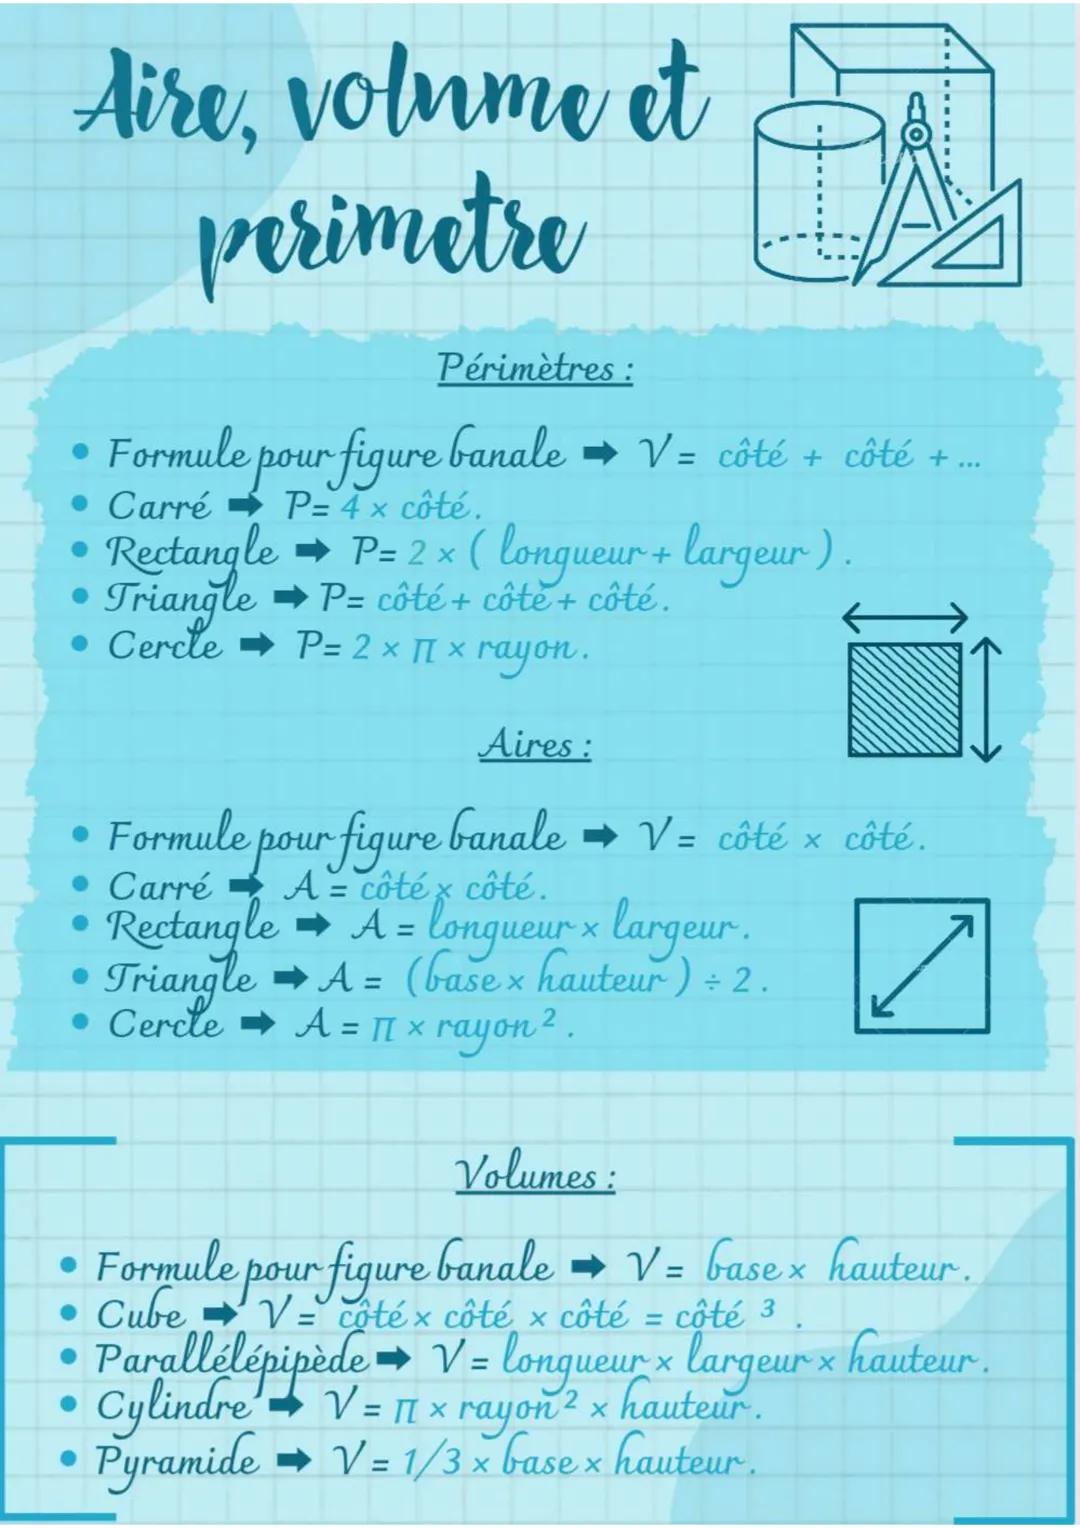 Aire, volume et
perimetre
Périmètres :
• Formule pour figure banale ➡ V = côté + côté + ...
• Carré ➡ P= 4 × côté.
• Rectangle ➡ P= 2 × ( longueur + largeur ).
• Triangle ➡ P= côté + côté + côté.
• Cercle ➡ P= 2 × π × rayon.
Aires :
• Formule pour figure banale ➡ V = côté × côté.
• Carré ➡ A = côté × côté.
• Rectangle ➡ A = longueur × largeur.
• Triangle ➡ A = (base × hauteur ) ÷ 2.
• Cercle ➡ A = π × rayon ².
Volumes :
• Formule pour figure banale ➡ V = base × hauteur.
• Cube ➡ V = côté × côté × côté = côté ³.
• Parallélépipède ➡ V = longueur × largeur × hauteur.
• Cylindre ➡ V = π × rayon ² × hauteur.
• Pyramide ➡ V = 1/3 × base × hauteur.